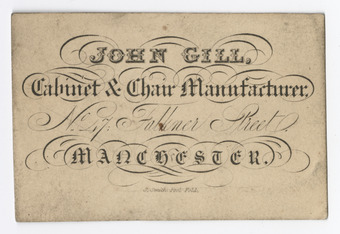 JOHN GILL,
Cabinet & Chair Manufacturer,
No. 27, Falkner Street,
MANCHESTER.